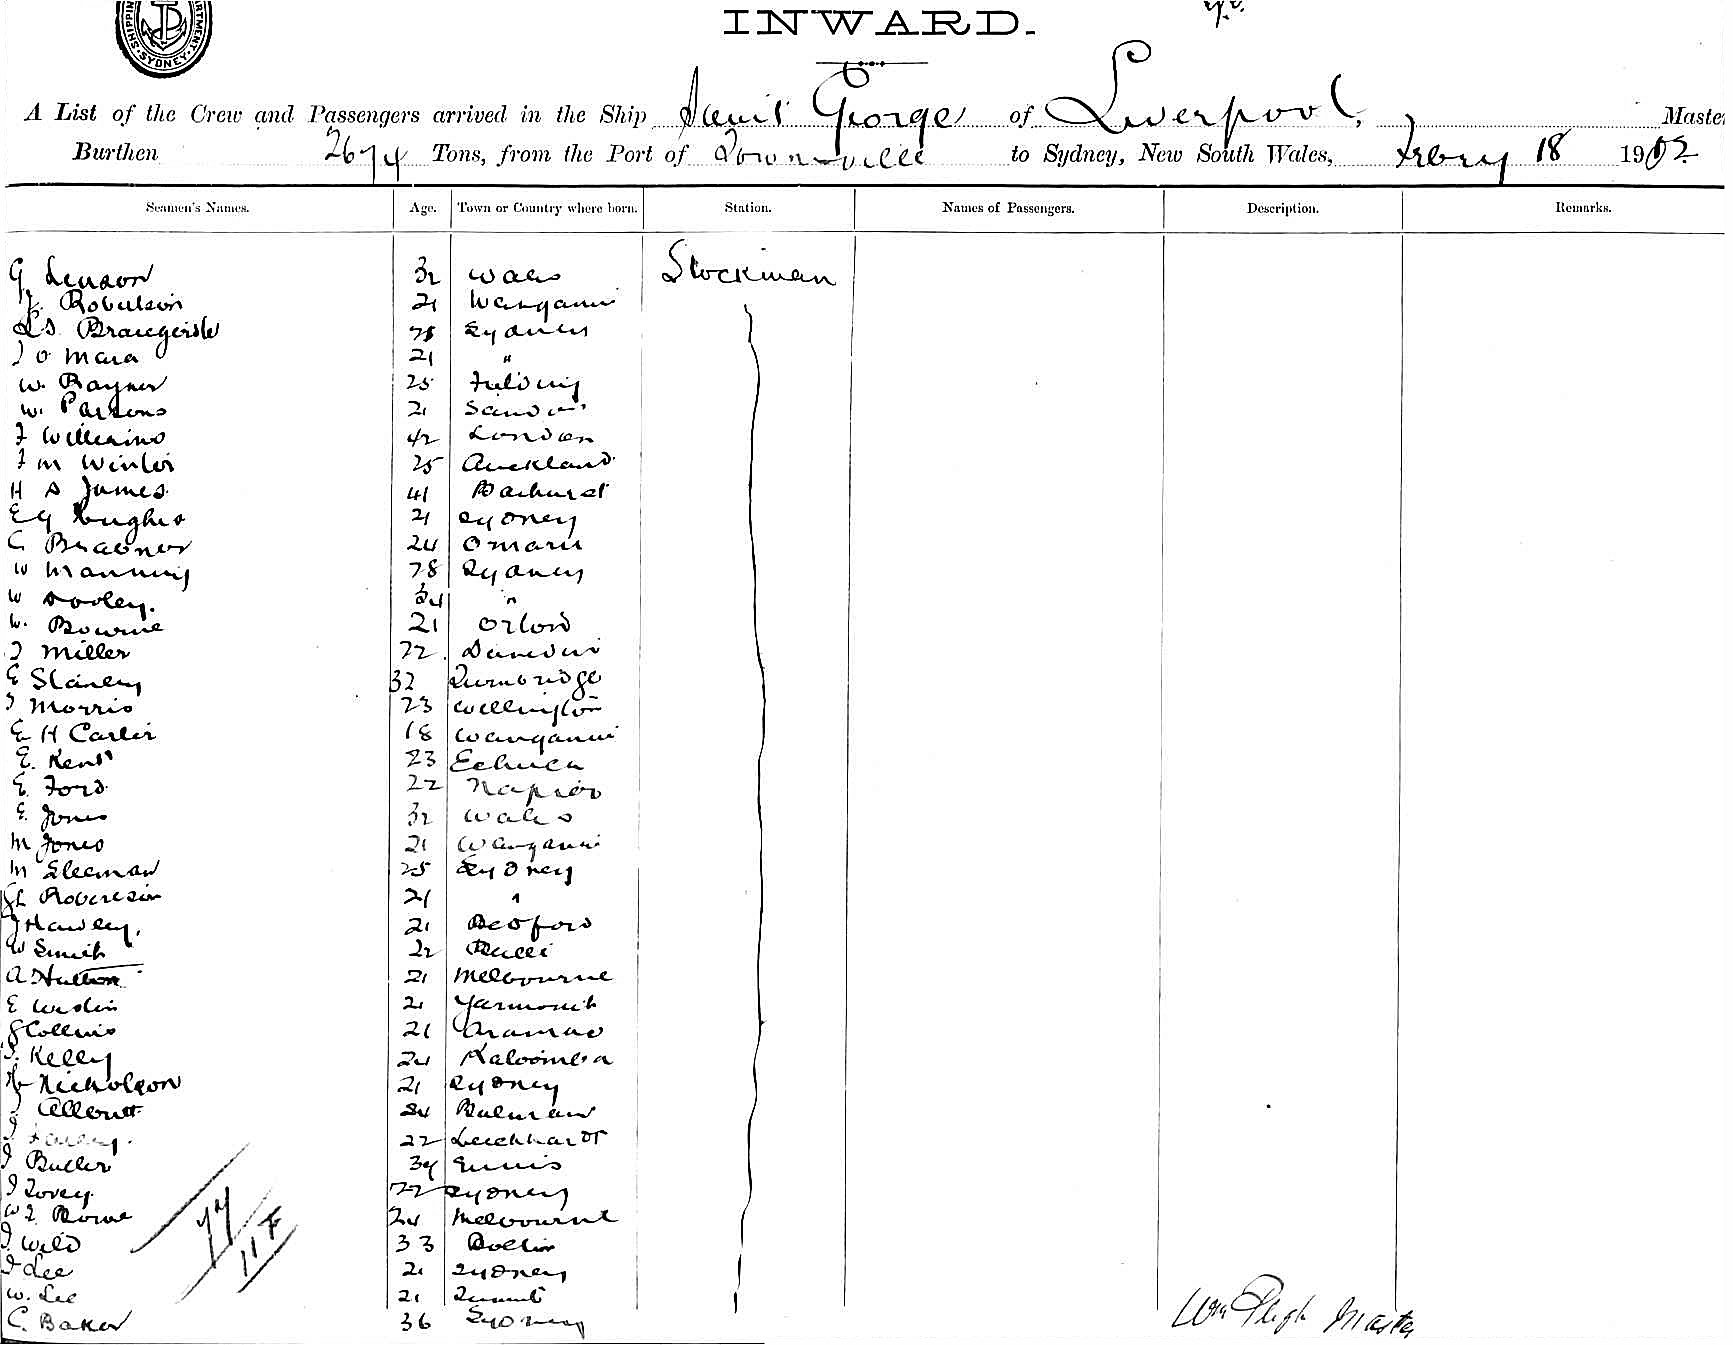 SHIPPING DEPARTMENT SYDNEY
INWARD.
A List of the Crew and Passengers arrived in the Ship Saint George of Liverpool, Master
Burthen 2674 Tons, from the Port of Townsville to Sydney, New South Wales, Febry 18 1902
Seamen's Names. Age. Town or Country where born. Station. Names of Passengers. Description. Remarks.
G 32 Wales Stockman
Robertson 21 Wanganui
Sydney
J O Mara 21 "
W. Rayner 25 Feilding
W. Parsons 21
J Williams 42 London
J M Winter 25 Auckland
H S James 41 Bathurst
E G Hughes 21 Sydney
C 24 Omaru
W Manning 28 Sydney
W Dooley. 34 "
W. Bourne 21
J Miller 22 Dunedin
E Stanley 32
J Morris 23 Wellington
E H Carter 18 Wanganui
E. Kent 23 Echuca
E. Ford 22 Napier
E. Jones 32 Wales
M Jones 21 Wanganui
M Sleeman 25 Sydney
Robertson 21 "
J Hawley, 21 Bedford
W Smith 22 Bulli
A Hutton 21 Melbourne
E 21 Yarmouth
Collins 21 Aramac
Kelly 24 Katoomba
Nicholson 21 Sydney
Allbutt 24 Balmain
22 Leichhardt
J Butler 34 Ennis
J Tovey. 22 Sydney
Rowe 24 Melbourne
J. Wild 33
J Lee 21 Sydney
W. Lee 21 Tumut
C. Baker 36 Sydney
Wm Pligh Master